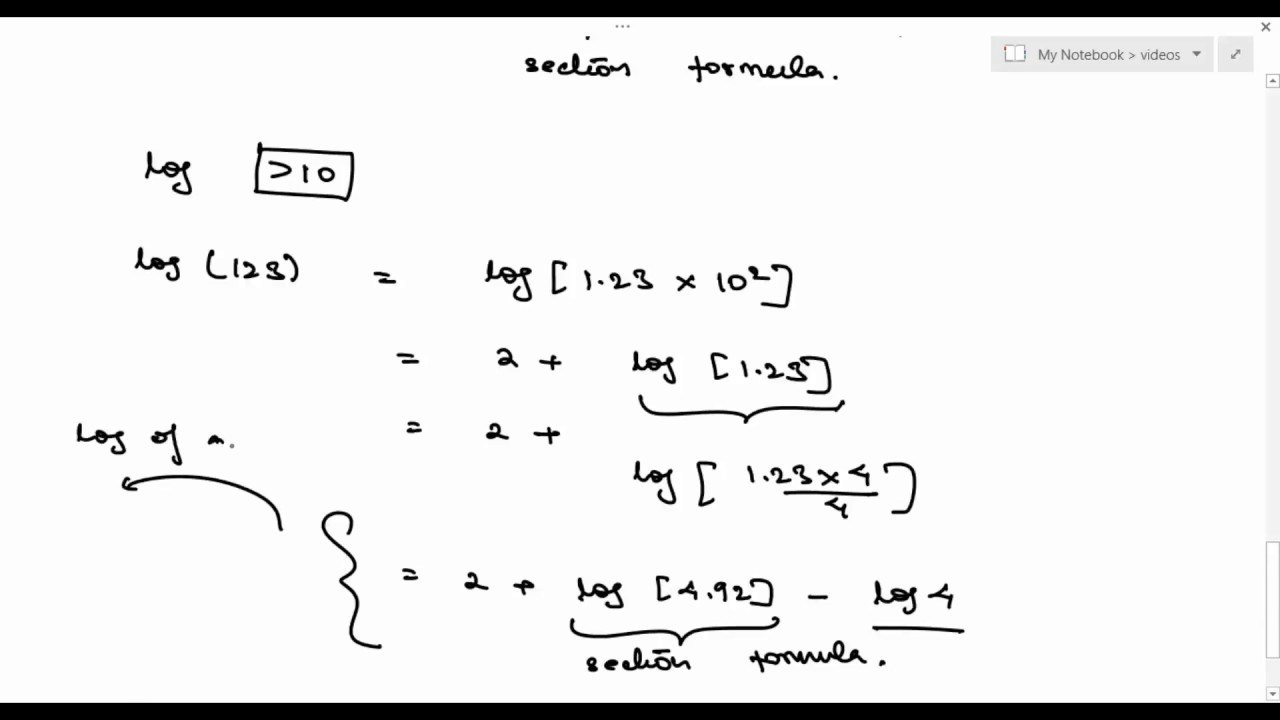 My Notebook > videos
section formula.
log >10
log (123) = log [1.23 × 10²]
= 2 + log [1.23]
= 2 +
log of
log [1.23 × 4 / 4]
= 2 + log [4.92] - log 4
section formula.